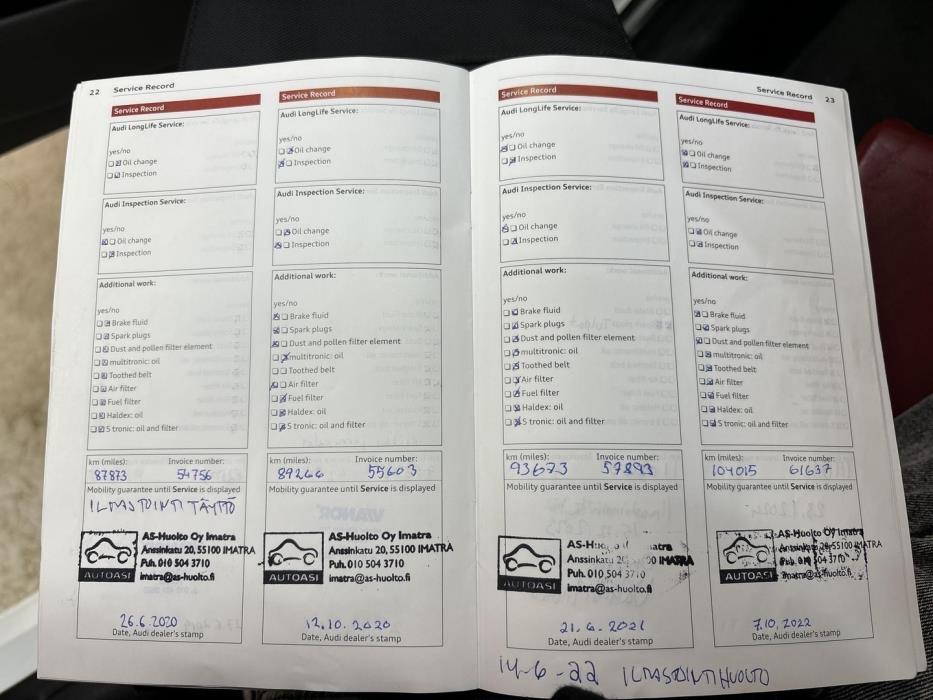 22 Service Record
Service Record
Audi LongLife Service:
yes/no
Oil change
Inspection
Audi Inspection Service:
yes/no
Oil change
Inspection
Additional work:
yes/no
Brake fluid
Spark plugs
Dust and pollen filter element
multitronic: oil
Toothed belt
Air filter
Fuel filter
Haldex: oil
S tronic: oil and filter
km (miles): Invoice number:
87873 54756
Mobility guarantee until Service is displayed
ILMASTOINTI TÄYTTÖ
AS-Huolto Oy Imatra
Anssinkatu 20, 55100 IMATRA
Puh. 010 504 3710
imatra@as-huolto.fi
AUTOASI
26.6.2020
Date, Audi dealer's stamp
Service Record
Audi LongLife Service:
yes/no
Oil change
Inspection
Audi Inspection Service:
yes/no
Oil change
Inspection
Additional work:
yes/no
Brake fluid
Spark plugs
Dust and pollen filter element
multitronic: oil
Toothed belt
Air filter
Fuel filter
Haldex: oil
S tronic: oil and filter
km (miles): Invoice number:
89266 55603
Mobility guarantee until Service is displayed
AS-Huolto Oy Imatra
Anssinkatu 20, 55100 IMATRA
Puh. 010 504 3710
imatra@as-huolto.fi
AUTOASI
12.10.2020
Date, Audi dealer's stamp
Service Record 23
Service Record
Audi LongLife Service:
yes/no
Oil change
Inspection
Audi Inspection Service:
yes/no
Oil change
Inspection
Additional work:
yes/no
Brake fluid
Spark plugs
Dust and pollen filter element
multitronic: oil
Toothed belt
Air filter
Fuel filter
Haldex: oil
S tronic: oil and filter
km (miles): Invoice number:
93673 57893
Mobility guarantee until Service is displayed
Puh. 010 504 3710
imatra@as-huolto.fi
AUTOASI
21.6.2021
Date, Audi dealer's stamp
Service Record
Audi LongLife Service:
yes/no
Oil change
Inspection
Audi Inspection Service:
yes/no
Oil change
Inspection
Additional work:
yes/no
Brake fluid
Spark plugs
Dust and pollen filter element
multitronic: oil
Toothed belt
Air filter
Fuel filter
Haldex: oil
S tronic: oil and filter
km (miles): Invoice number:
104015 61637
Mobility guarantee until Service is displayed
AS-Huolto Oy Imatra
Anssinkatu 20, 55100 IMATRA
Puh. 010 504 3710
imatra@as-huolto.fi
AUTOASI
7.10.2022
Date, Audi dealer's stamp
14-6-22 ILMASTOINTIHUOLTO